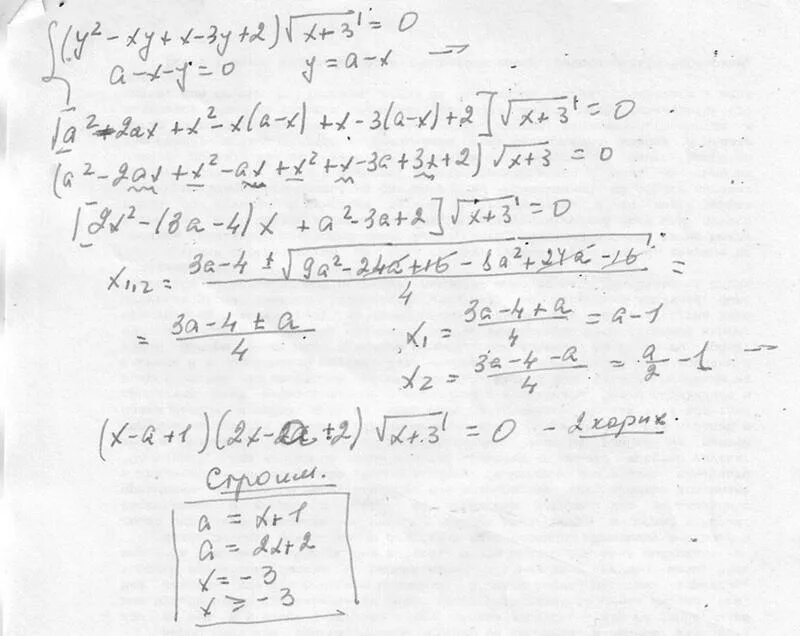 (y² - xy + x - 3y + 2) √(x+3) = 0
a - x - y = 0    y = a - x →
[a² - 2ax + x² - x(a-x) + x - 3(a-x) + 2] √(x+3) = 0
(a² - 2ax + x² - ax + x² + x - 3a + 3x + 2) √(x+3) = 0
[2x² - (3a-4)x + a² - 3a + 2] √(x+3) = 0
x₁,₂ = (3a - 4 ± √(9a² - 24a + 16 - 8a² + 24a - 16)) / 4 =
= (3a - 4 ± a) / 4    x₁ = (3a - 4 + a) / 4 = a - 1
x₂ = (3a - 4 - a) / 4 = a/2 - 1 →
(x - a + 1)(2x - a + 2) √(x+3) = 0 - 2 корня.
Строим.
a = x + 1
a = 2x + 2
x = -3
x ≥ -3